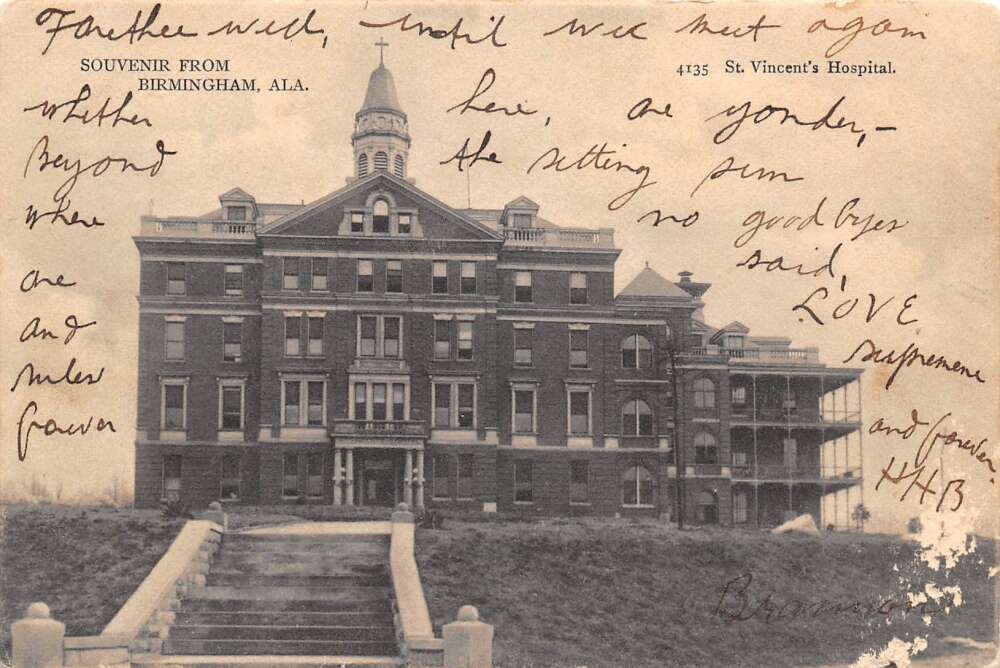 Farethee well, until we meet again
SOUVENIR FROM
BIRMINGHAM, ALA.
4135 St. Vincent's Hospital.
whether here, are yonder,-
Beyond the setting sun
where no good byes
are said,
and LOVE
rules supremene
forever and forever.
HHB
Brannon